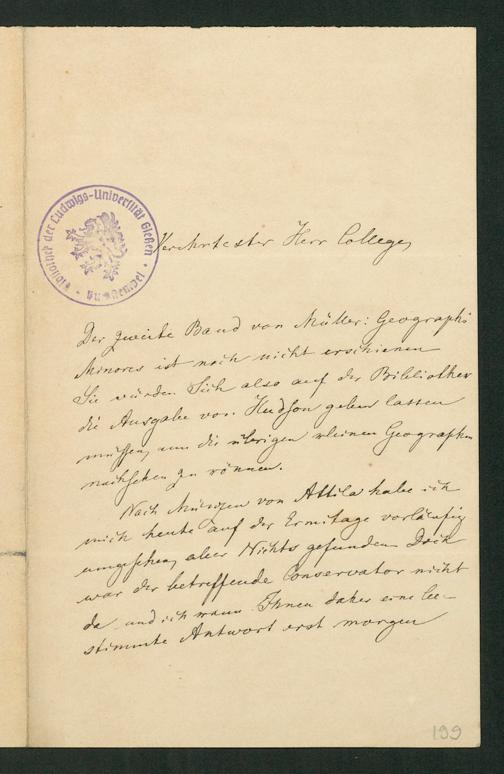 Bibliothek der Ludwigs-Universität Gießen
Verehrtester Herr College,
Der zweite Band von Müller: Geographi
Minores ist noch nicht erschienen
Sie würden Sich also auf der Bibliothek
die Ausgabe von Hudson geben lassen
müssen, um die übrigen kleinen Geographen
nachsehen zu können.
Nach Münzen von Attila habe ich
mich heute auf der Ermitage vorläufig
umgesehen, aber Nichts gefunden. Doch
war der betreffende Conservator nicht
da und ich kann Ihnen daher eine be-
stimmte Antwort erst morgen
199